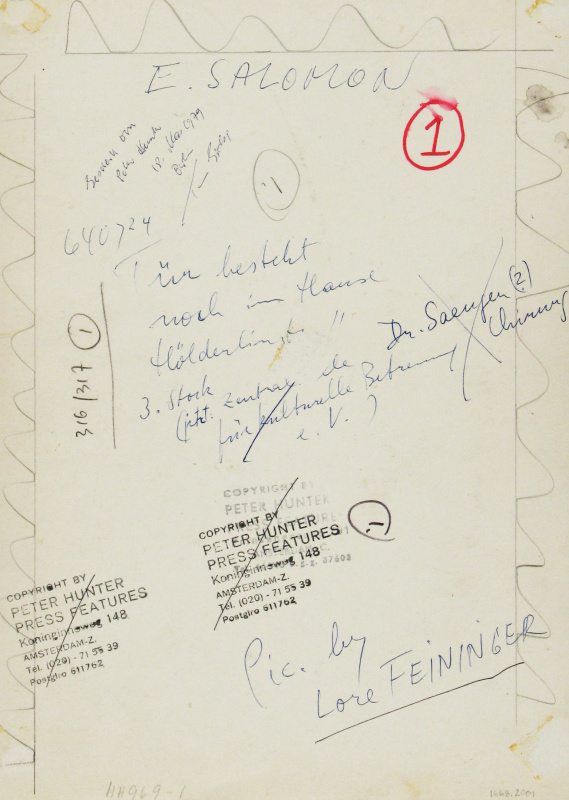 E. SALOMON
1
Peter
18. Mai 1979
640724
Tür besteht
noch im Hause
Hölderlinstr. 11
3. Stock
Dr. Saenger (?)
Chirurg
(jetzt: Zentrale
für kulturelle Betreuung
e. V.)
316/317 1
COPYRIGHT BY
PETER HUNTER
PRESS FEATURES
COPYRIGHT BY
PETER HUNTER
PRESS FEATURES
Koninginneweg 148
AMSTERDAM-Z.
Tel. (020) - 71 55 39
Postgiro 611762
COPYRIGHT BY
PETER HUNTER
PRESS FEATURES
Koninginneweg 148
AMSTERDAM-Z.
Tel. (020) - 71 55 39
Postgiro 611762
Pic. by
Lore FEININGER
HH969-1